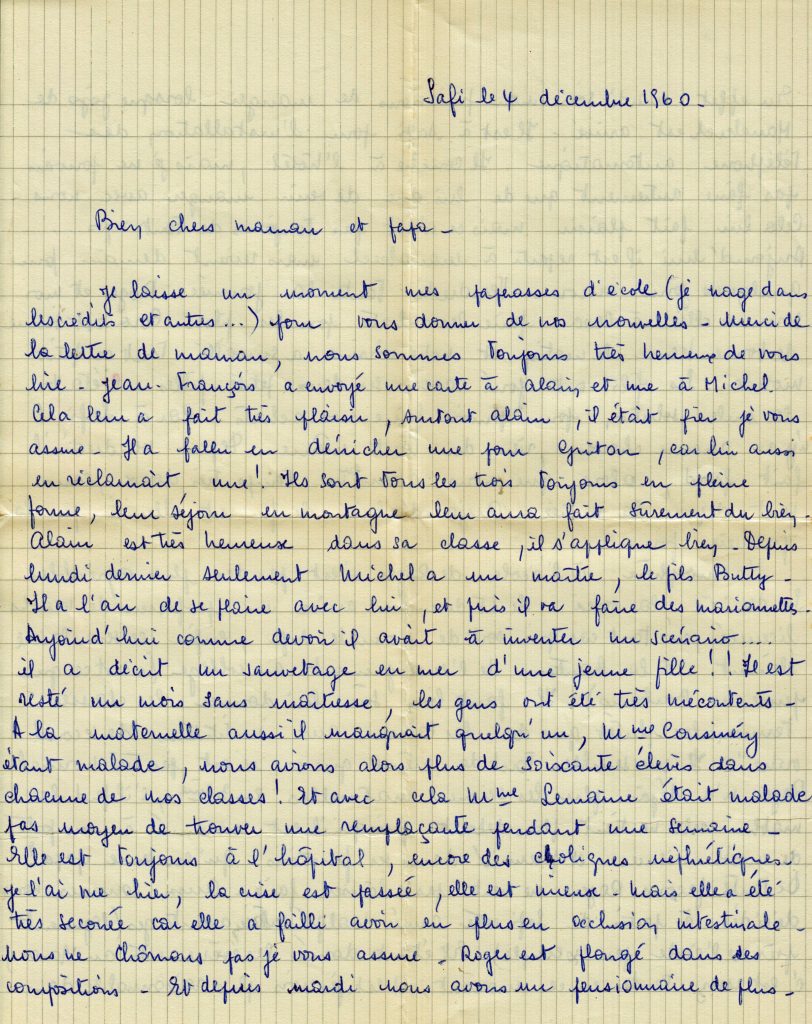 Safi le 4 décembre 1960.
Bien chers maman et papa -
Je laisse un moment mes paperasses d'école (je nage dans
les crédits et autres...) pour vous donner de nos nouvelles - Merci de
la lettre de maman, nous sommes toujours très heureux de vous
lire - Jean-François a envoyé une carte à Alain et une à Michel.
Cela leur a fait très plaisir, surtout Alain, il était fier je vous
assure - Il a fallu en dénicher une pour Griton, car lui aussi
en réclamait une! Ils sont tous les trois toujours en pleine
forme, leur séjour en montagne leur aura fait sûrement du bien -
Alain est très heureux dans sa classe, il s'applique bien - Depuis
lundi dernier seulement Michel a un maître, le fils Butty -
Il a l'air de se plaire avec lui, et puis il va faire des marionnettes -
Aujourd'hui comme devoir il avait à inventer un scénario....
il a décrit un sauvetage en mer d'une jeune fille!! Il est
resté un mois sans maîtresse, les gens ont été très mécontents -
A la maternelle aussi il manquait quelqu'un, Mme Cousinéry
étant malade, nous avions alors plus de soixante élèves dans
chacune de nos classes! Et avec cela Mme Lemaine était malade
pas moyen de trouver une remplaçante pendant une semaine -
Elle est toujours à l'hôpital, encore des choliques néphrétiques -
je l'ai vue hier, la crise est passée, elle est mieux - mais elle a été
très secouée car elle a failli avoir en plus en occlusion intestinale -
Nous ne chômons pas je vous assure - Roger est plongé dans ses
compositions - Et depuis mardi nous avons un pensionnaire de plus -